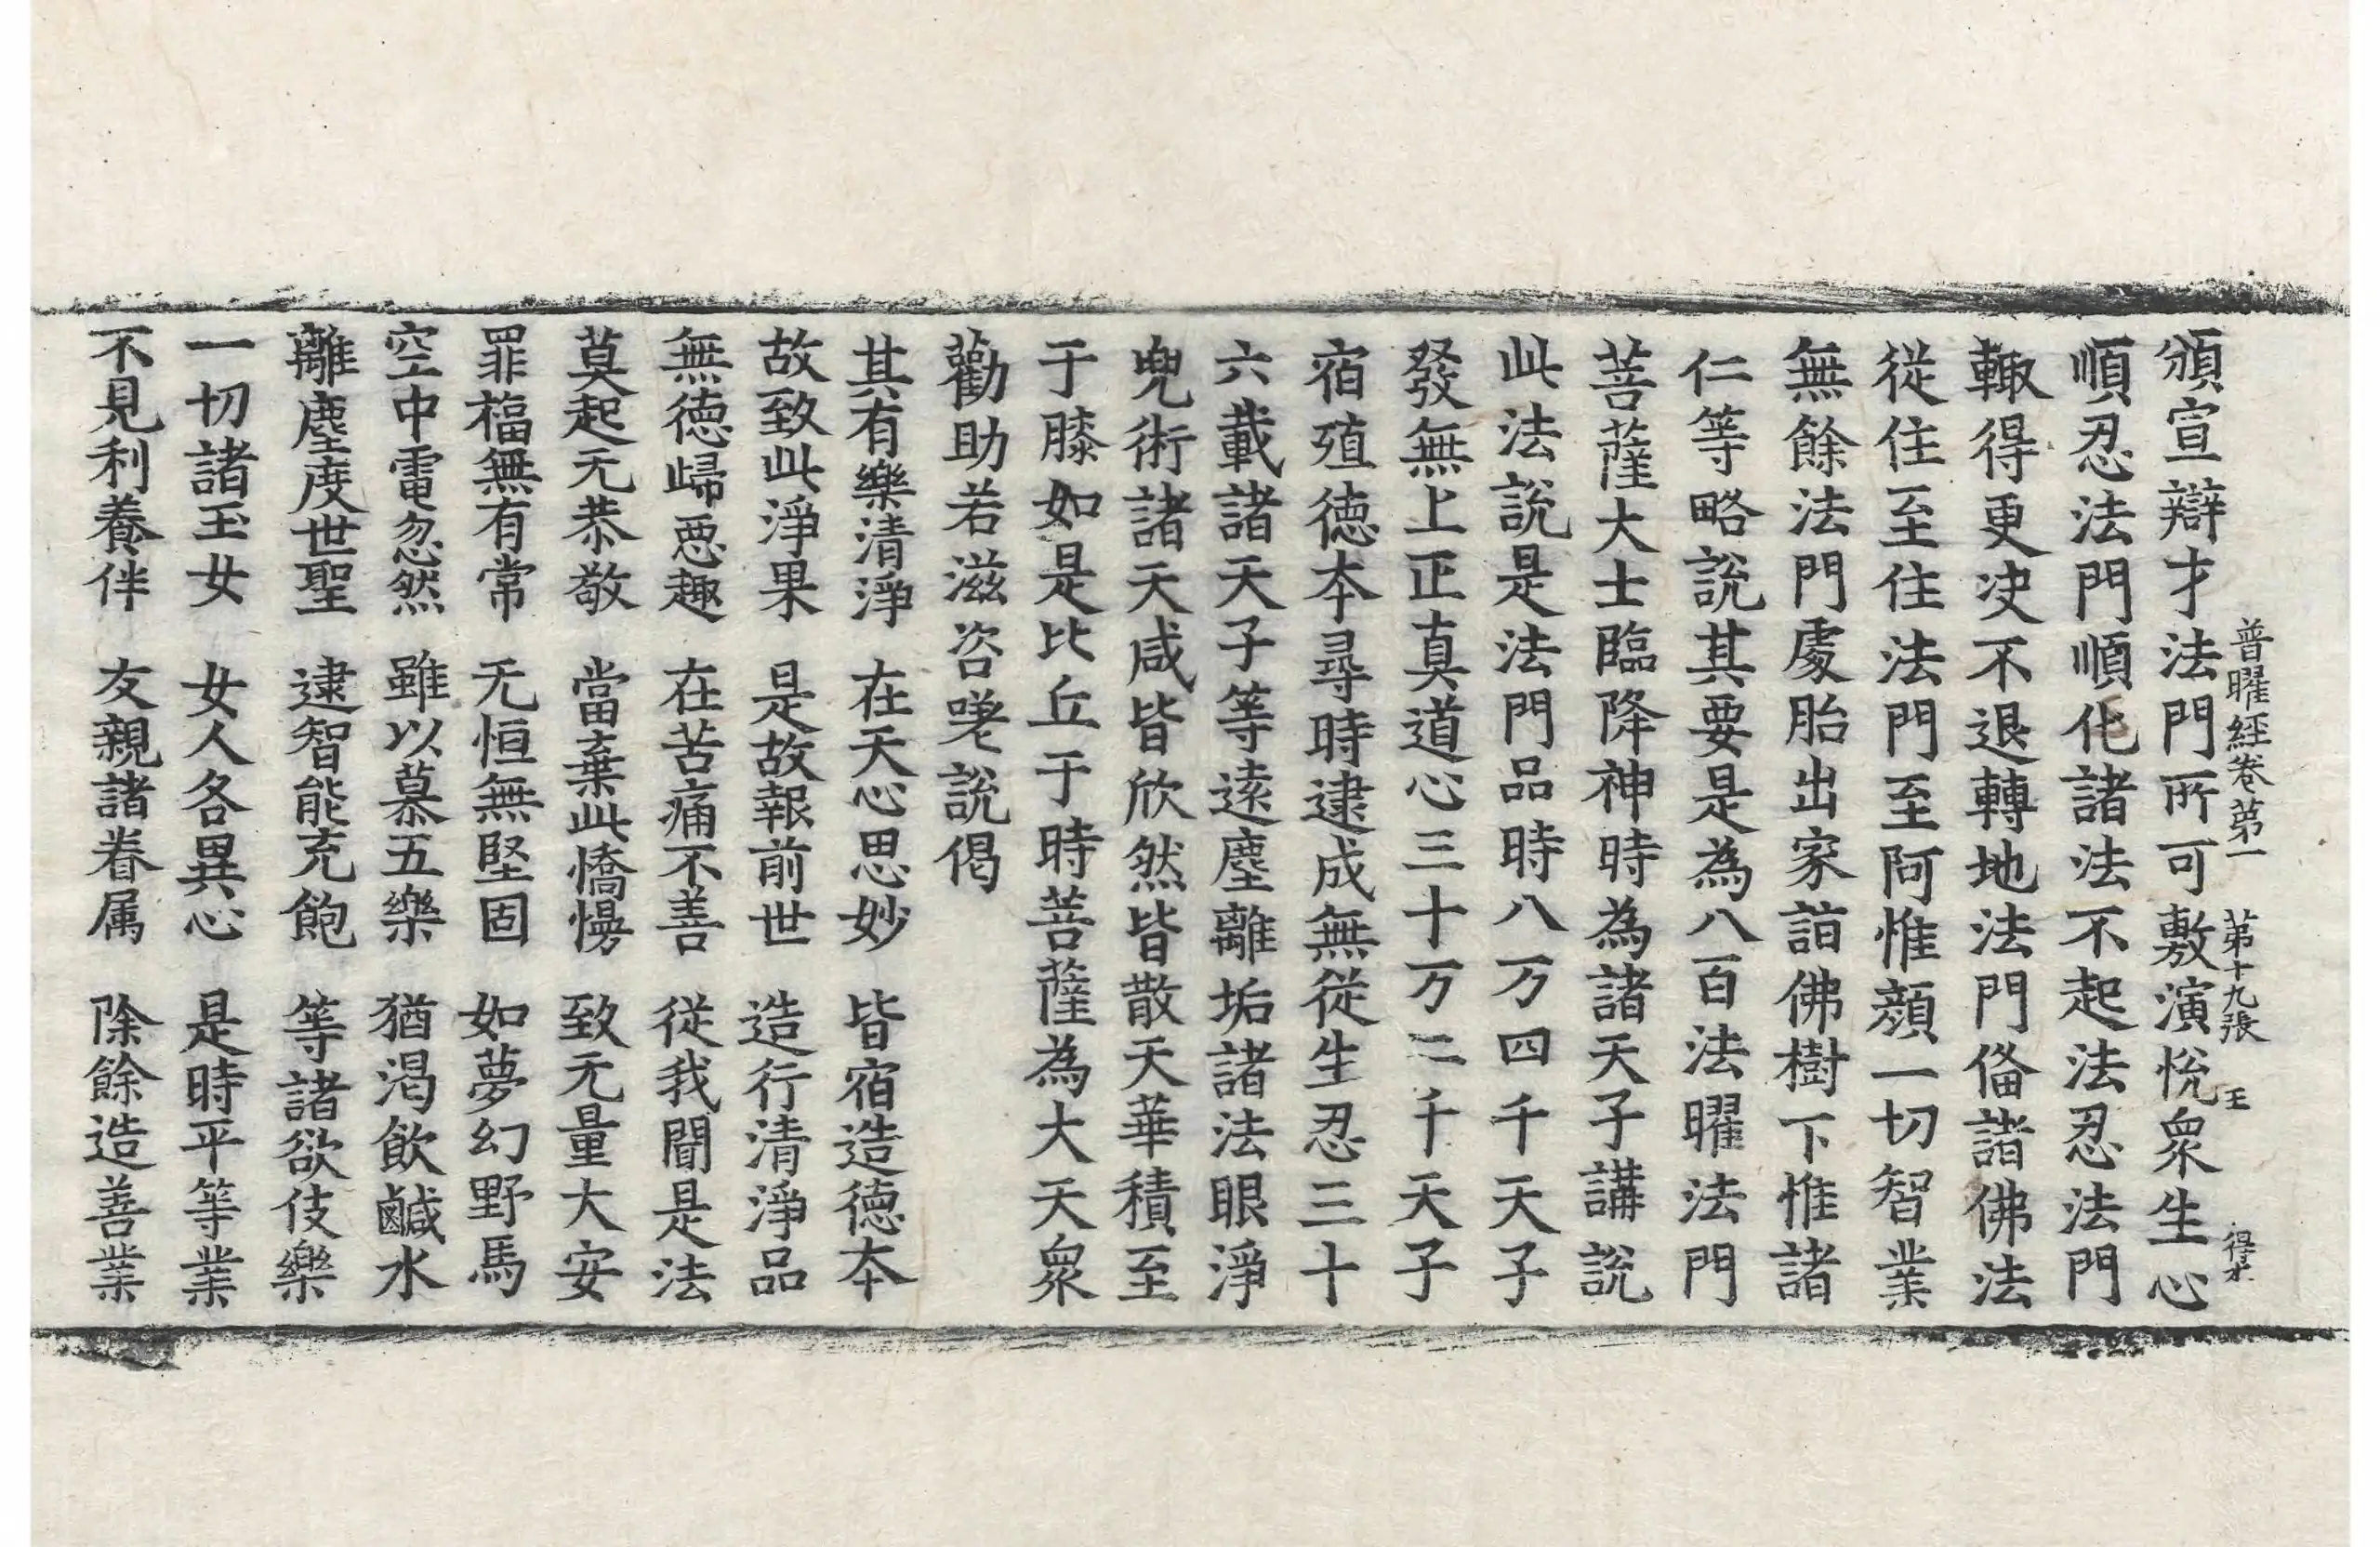 普曜經卷第一　第十九張　王　得才
頒宣辯才法門所可敷演悅衆生心
順忍法門順化諸法不起法忍法門
輙得更决不退轉地法門俻諸佛法
從住至住法門至阿惟顔一切智業
無餘法門處胎出家詣佛樹下惟諸
仁等略說其要是為八百法曜法門
菩薩大士臨降神時為諸天子講說
此法說是法門品時八万四千天子
發無上正真道心三十万二千天子
宿殖德本尋時逮成無從生忍三十
六載諸天子等遠塵離垢諸法眼淨
兜術諸天咸皆欣然皆散天華積至
于膝如是比丘于時菩薩為大天衆
勸助若滋咨嗟說偈
其有樂清淨　在天心思妙　皆宿造德本
故致此淨果　是故報前世　造行清淨品
無德歸惡趣　在苦痛不善　從我聞是法
莫起无恭敬　當棄此憍慢　致无量大安
罪福無有常　无恒無堅固　如夢幻野馬
空中電忽然　雖以慕五樂　猶渴飲鹹水
離塵度世聖　逮智能充飽　等諸欲伎樂
一切諸玉女　女人各異心　是時平等業
不見利養伴　友親諸眷属　除餘造善業